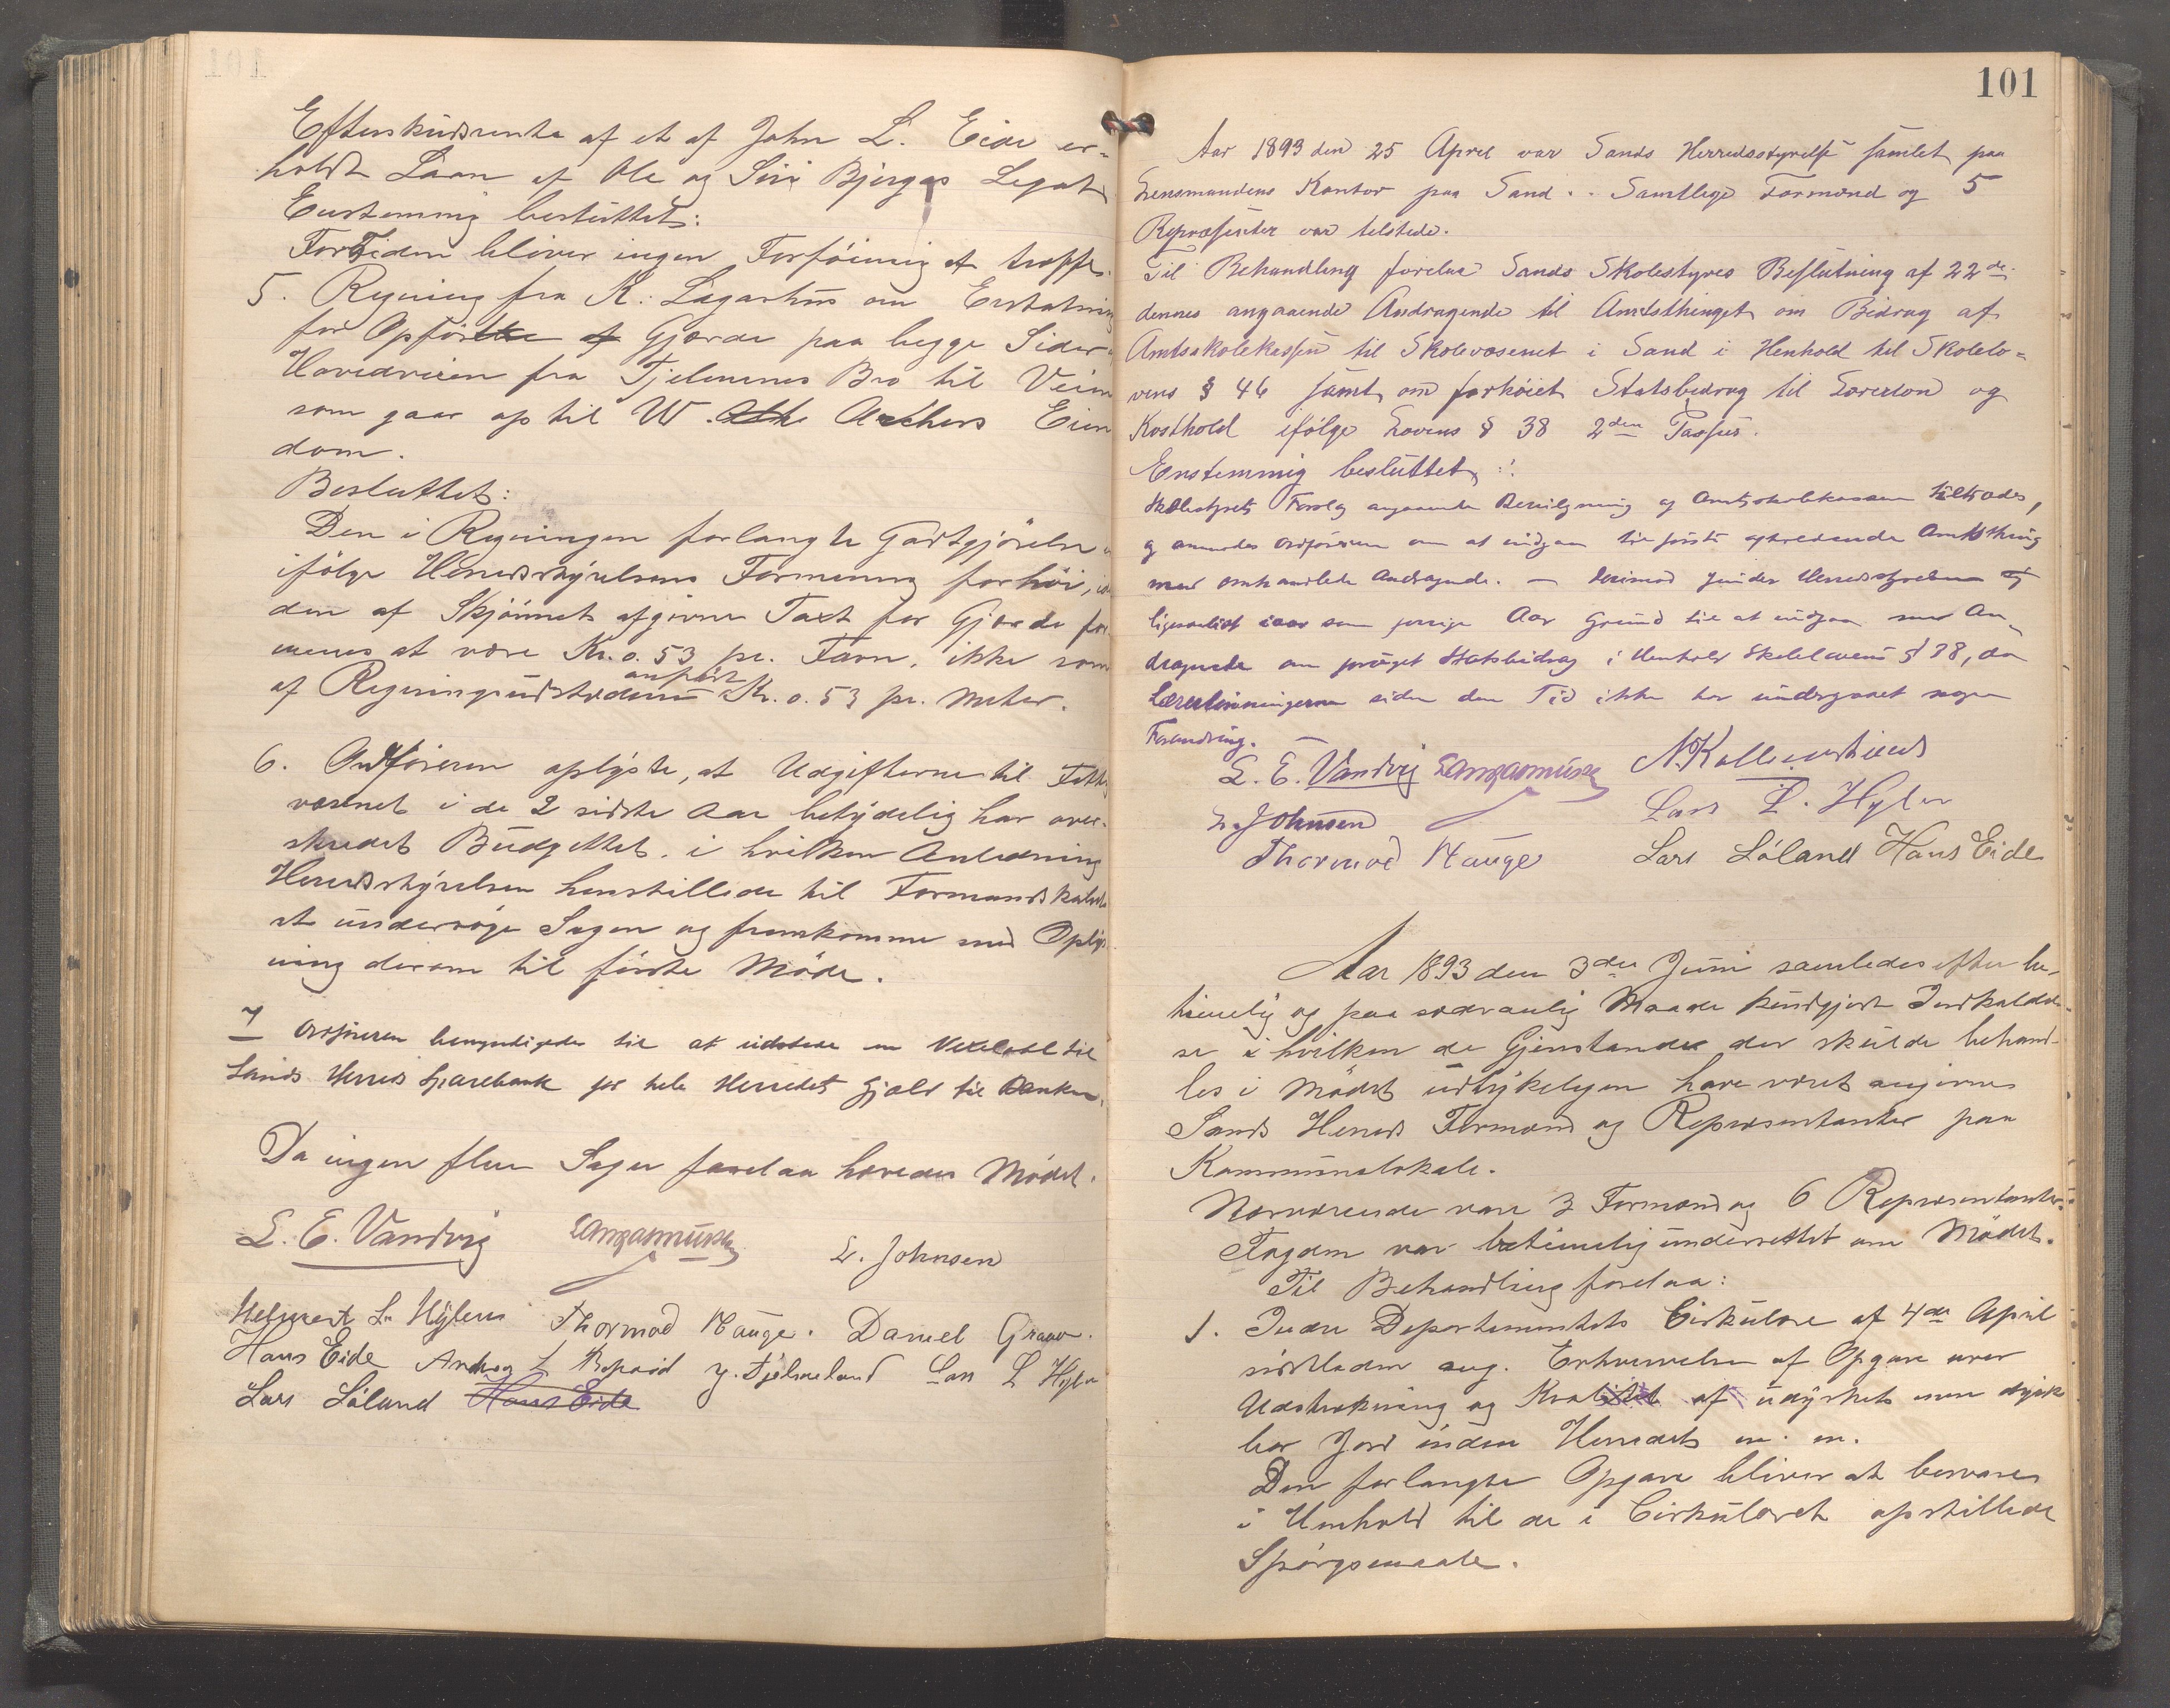 Efterskudsrente af et af John L. Eide er=
holdt Laan af Ole og Siri Bjergas Legat
Enstemmig besluttet:
For Tiden bliver ingen Forföining at træffe.
5. Regning fra K. Lagarhus om Erstatning
for Opförelse af Gjærde paa begge Sider
Hovedveien fra Tjelmenes Bro til Veien
som gaar op til W. Archers Eien
dom.
Besluttet:
Den i Regningen forlangte Godtgjörelse
ifölge Herredsstyrelsens Formening forhöi,
den af Skjönnet afgivne Taxt for Gjærde for
menes at være Kr. 0.53 pr. Favn, ikke som
af Regningsudstederen anfört Kr. 0.53 pr. Meter.
6. Ordföreren oplyste, at Udgifterne til Fattig
væsenet i de 2 sidste Aar betydelig har over-
skredet Budgettet, i hvilken Anledning
Herredsstyrelsen henstillede til Formandskabet
at undersöge Sagen og fremkomme med Oplys
ning derom til förste Möde.
7 Ordföreren bemyndigedes til at udstede en Vexelobl til
Sands Herreds Sparebank for hele Herredets Gjæld til Banken.
Da ingen flere Sager forelaa hævedes Mödet.
L. E. Vandvig L. Johnsen
L. Hylen Thormod Hauge. Daniel Graver.
Hans Eide Andreas L Y. Fjelmeland Lars L Hylen
Lars Löland Hans Eide
101
Aar 1893 den 25 April var Sands Herredsstyrelse samlet paa
Lensmandens Kontor paa Sand. Samtlige Formænd og 5
Repræsenter var tilstede.
Til Behandling forelaa Sands Skolestyres Beslutning af 22de
dennes angaaende Andragende til Amtsthinget om Bidrag af
Amtsskolekassen til Skolevæsenet i Sand i Henhold til Skolelo=
vens § 46 samt om forhöiet Statsbidrag til Lærerlön og
Kosthold ifölge Lovens § 38 2den Passus.
Enstemmig besluttet:
Skolestyrets Forslag angaaende Bevilgning af Amtsskolekassen tiltrædes,
og anmodes Ordföreren om at indgaa til förste aftrædende Amtsthing
med omhandlede Andragende. — Derimod finder Herredsstyrelsen ej
ligesaalidt iaar som forrige Aar Grund til at indgaa med An-
dragende om foröget Statsbidrag i Henhold Skolelovens § 38, da
Lærerlönningerne siden den Tid ikke har undergaaet nogen
Forandring.
L. E. Vandvig
L. Johnsen Lars L. Hylen
Thormod Hauge Lars Löland Hans Eide
Aar 1893 den 3die Juni samledes efter be-
timelig og paa sædvanlig Maade kundgjort Indkaldel
se i hvilken de Gjenstande der skulde behand-
les i Mödet udtrykkelig have været angivne
Sands Herreds Formænd og Repræsentanter paa
Kommunelokale.
Nærværende vare 3 Formænd og 6 Repræsentanter.
Fogden var betimelig underrettet om Mödet.
Til Behandling forelaa:
1. Indre Departementets Cirkulære af 4de April
sidstleden ang. Erhvervelse af Opgave over
Udstrækning og Kvalitet af udyrket men dyrk
bar Jord inden Herredet m. m.
Den forlangte Opgave bliver at besvare
i Henhold til de i Cirkulæret opstillede
Spörgsmaale.